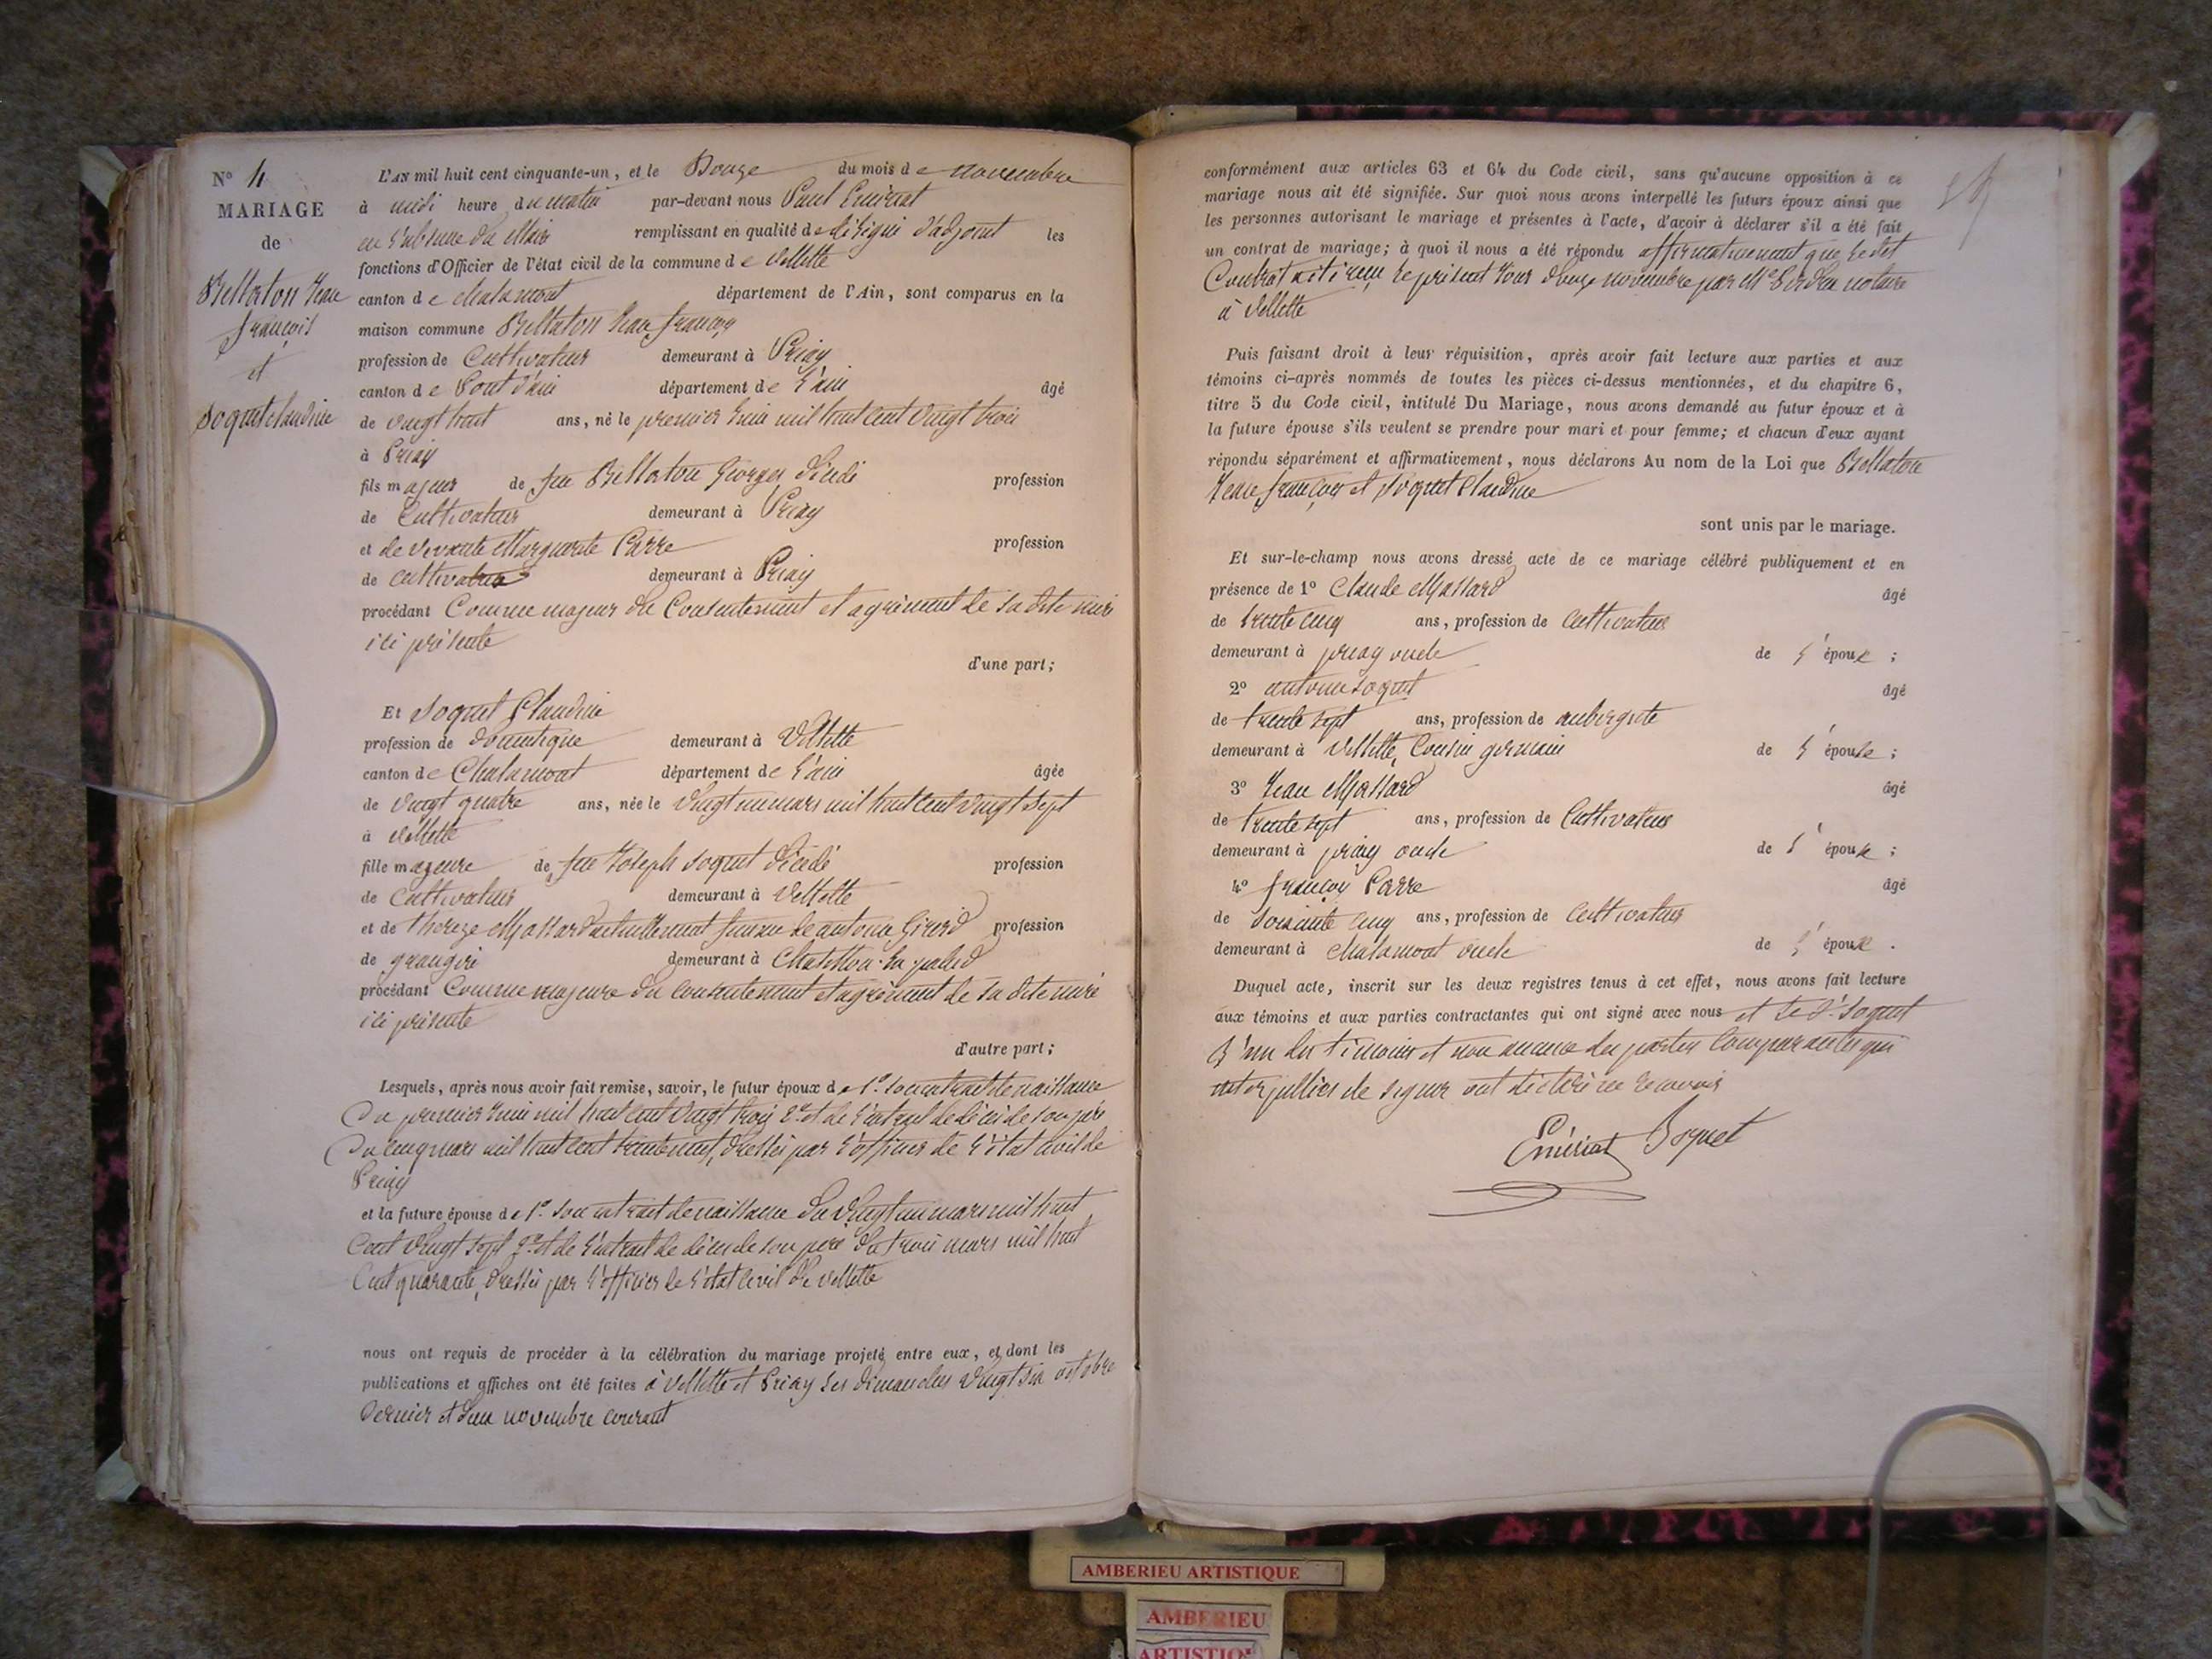 N° 4
MARIAGE
de
Bellaton Jean
françois
et
Soquet Claudine
L'AN mil huit cent cinquante-un, et le Douze du mois de novembre
à midi heure du matin par-devant nous Paul Emériat
en l'absence du Maire remplissant en qualité de délégué d'adjoint les
fonctions d'Officier de l'état civil de la commune de Villette
canton de Chalamont département de l'Ain, sont comparus en la
maison commune Bellaton Jean françois
profession de Cultivateur demeurant à Priay
canton de Pont d'ain département de l'ain âgé
de vingt huit ans, né le premier Juin mil huit cent vingt trois
à Priay
fils majeur de feu Bellaton Georges décédé profession
de Cultivateur demeurant à Priay
et de vivante Marguerite Parre profession
de demeurant à Priay
procédant Comme majeur du Consentement et agrément de sa dite mère
ici présente
d'une part;
Et Soquet Claudine
profession de domestique demeurant à Villette
canton de Chalamont département de l'ain âgée
de vingt quatre ans, née le vingt un mars mil huit cent vingt sept
à Villette
fille majeure de feu Joseph Soquet décédé profession
de Cultivateur demeurant à Villette
et de Thereze Massard actuellement femme de antoine Girerd profession
de grangère demeurant à Chatillon la palud
procédant Comme majeure du Consentement et agrément de sa dite mère
ici présente
d'autre part;
Lesquels, après nous avoir fait remise, savoir, le futur époux de 1° son extrait de naissance
Du premier Juin mil huit cent vingt trois 2° et de l'extrait de décès de son père
Du cinq mars mil huit cent trente neuf, dressés par l'officier de l'état civil de
Priay
et la future épouse de 1° son extrait de naissance du vingt un mars mil huit
Cent vingt sept 2° et de l'extrait de décès de son père du trois mars mil huit
Cent quarante, dressés par l'officier de l'état civil de Villette
nous ont requis de procéder à la célébration du mariage projeté entre eux, et dont les
publications et affiches ont été faites à Villette et Priay les dimanches vingt six octobre
Dernier et deux novembre courant
conformément aux articles 63 et 64 du Code civil, sans qu'aucune opposition à ce
mariage nous ait été signifiée. Sur quoi nous avons interpellé les futurs époux ainsi que
les personnes autorisant le mariage et présentes à l'acte, d'avoir à déclarer s'il a été fait
un contrat de mariage; à quoi il nous a été répondu affirmativement que ledit
Contrat a été reçu le présent Jour douze novembre par Me notaire
à Villette
Puis faisant droit à leur réquisition, après avoir fait lecture aux parties et aux
témoins ci-après nommés de toutes les pièces ci-dessus mentionnées, et du chapitre 6,
titre 5 du Code civil, intitulé Du Mariage, nous avons demandé au futur époux et à
la future épouse s'ils veulent se prendre pour mari et pour femme; et chacun d'eux ayant
répondu séparément et affirmativement, nous déclarons Au nom de la Loi que Bellaton
Jean françois et Soquet Claudine
sont unis par le mariage.
Et sur-le-champ nous avons dressé acte de ce mariage célébré publiquement et en
présence de 1° Claude Massard âgé
de trente cinq ans, profession de Cultivateur
demeurant à priay oncle de l'épouse;
2° antoine Soquet âgé
de trente sept ans, profession de aubergiste
demeurant à Villette, Cousin germain de l'épouse;
3° Jean Massard âgé
de trente sept ans, profession de Cultivateur
demeurant à priay oncle de l'épouse;
4° françois Parre âgé
de soixante cinq ans, profession de Cultivateur
demeurant à Chalamont oncle de l'époux.
Duquel acte, inscrit sur les deux registres tenus à cet effet, nous avons fait lecture
aux témoins et aux parties contractantes qui ont signé avec nous et le Sr Soquet
L'un des témoins et non aucune des parties Comparantes qui
de signer ont déclaré ne le savoir
Emériat Soquet
AMBERIEU ARTISTIQUE
AMBERIEU
ARTISTIQ